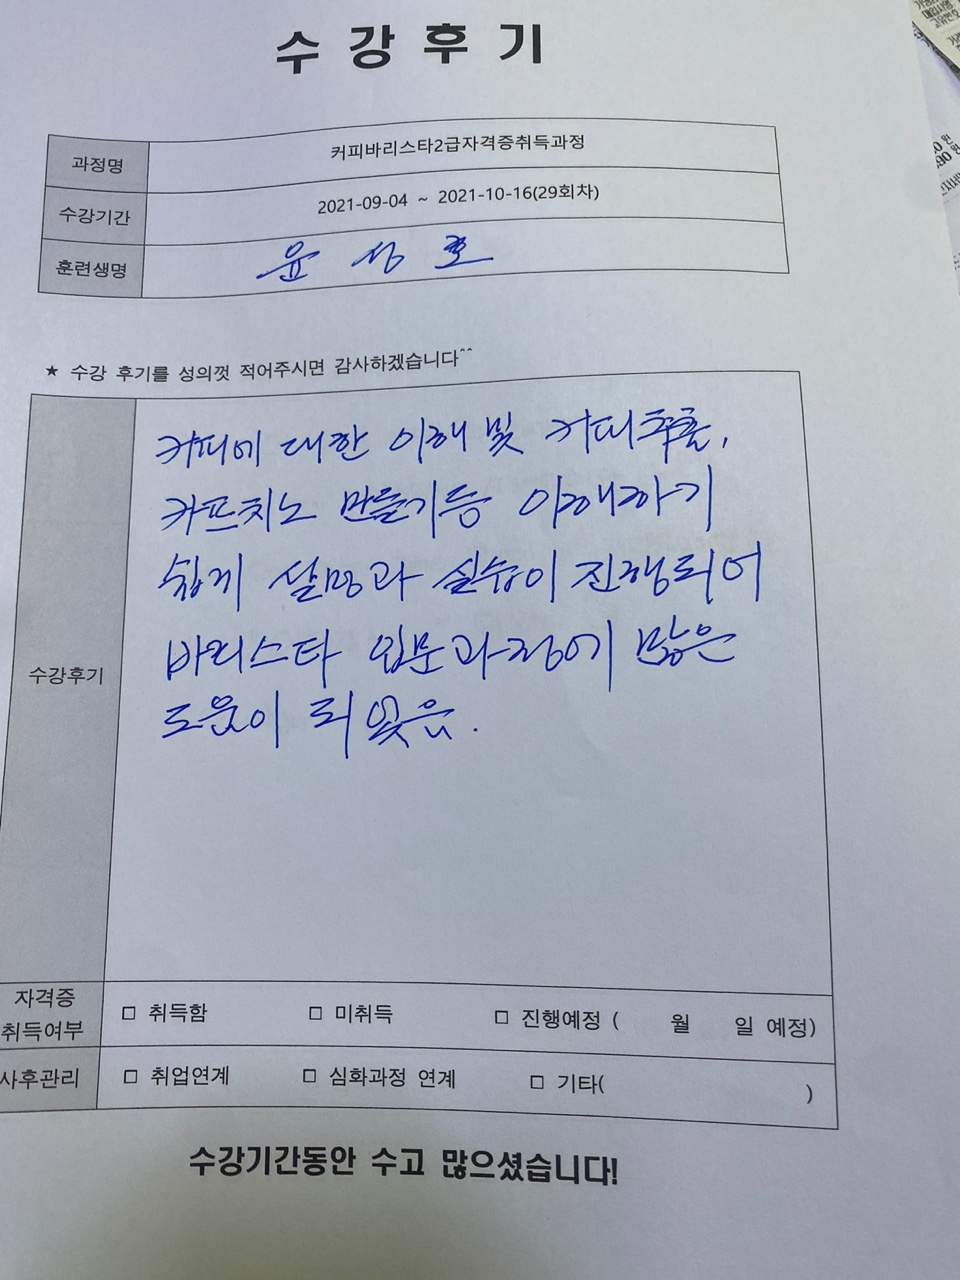 수강후기
과정명 커피바리스타2급자격증취득과정
수강기간 2021-09-04 ~ 2021-10-16(29회차)
훈련생명 윤성호
★ 수강 후기를 성의껏 적어주시면 감사하겠습니다^^
커피에 대한 이해 및 커피추출,
카프치노 만들기등 이해하기
쉽게 설명과 실습이 진행되어
수강후기
바리스타 입문과정에 많은
도움이 되었음.
자격증
취득여부 □ 취득함 □ 미취득 □ 진행예정 ( 월 일 예정)
사후관리 □ 취업연계 □ 심화과정 연계 □ 기타( )
수강기간동안 수고 많으셨습니다!